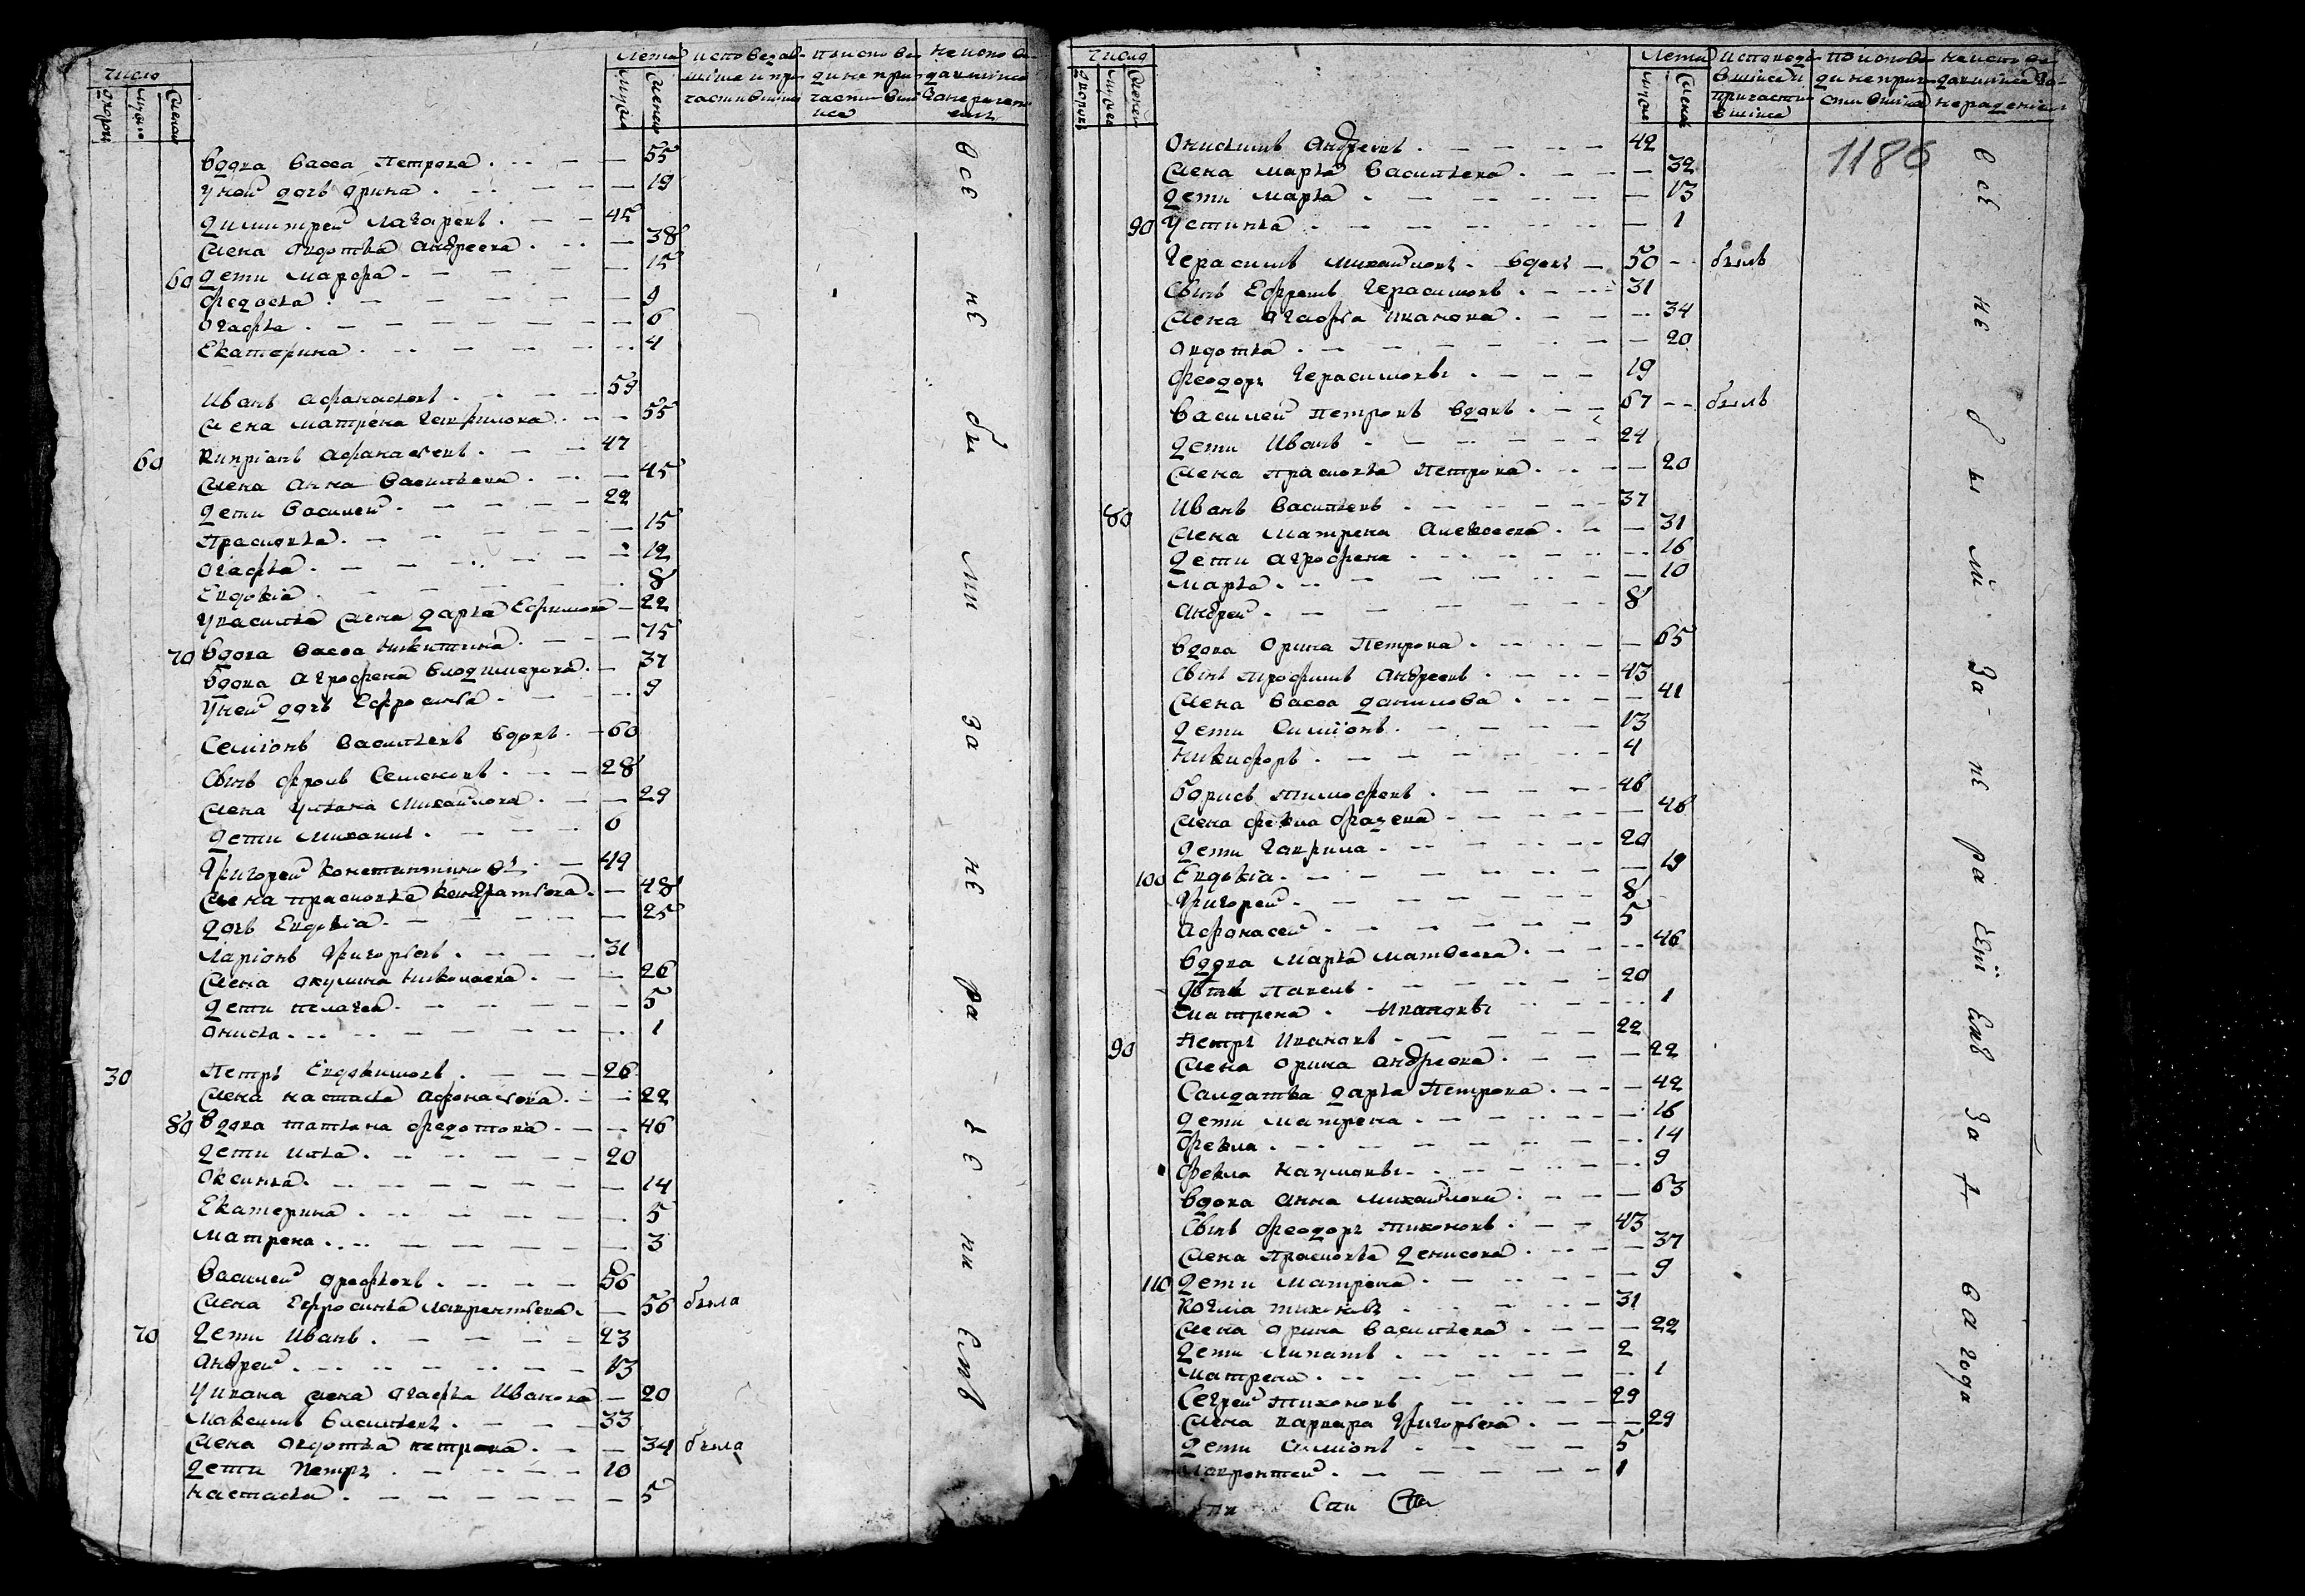 число
дворовъ
мужеск
женска
Лета
мужеск
женск
исповедав
шіися и при
частившіися
Исповѣ
дине при
частивши
ися
не испове
давшіися
за нерадени
емъ
вдова Васса Петрова 55
у ней дочь Орина 19
Димитрей Лазаревъ 45
жена Авдотья Андреева 38
60 дети Марфа 15
Федосья 9
Огафья 6
Екатерина 4
Иванъ Афанасьевъ 59
жена Матрена Гаврилова 55
60 Кипріянъ Афанасьевъ 47
жена Анна Васильева 45
дети Василей 22
Прасковья 15
Огафья 12
Евдокія 8
у Василья жена Дарья Ефимова 22
70 вдова Васса Никитина 75
вдова Агрофена Владимерова 37
у ней дочь Ефросинья 9
Семіонъ Васильевъ вдовъ 60
сынъ Фролъ Семеновъ 28
жена Ульяна Михайлова 29
дети Михаилъ 0
Григорей Констинтиновъ 49
жена Прасковья Кондратьева 48
дочь Евдокія 25
Ларіонъ Григорьевъ 31
жена Окулина Николаева 26
дети Пелагея 5
Онисья 1
30 Петръ Евдокимовъ 26
жена Настасья Афонасьева 22
80 вдова Татьяна Федотова 46
дети Илья 20
Оксинья 14
Екатерина 5
Матрена 3
Василей Орефьевъ 56
жена Ефросинья Лаврентьева 56 была
70 дети Иванъ 23
Андрей 13
у Ивана жена Огафья Иванова 20
Максимъ Васильевъ 33
жена Авдотья Петрова 34 была
дети Петръ 10
Настасья 5
все не бы ли за не ра де ни емъ
число
дворовъ
мужеск
женск
Лета
мужеск
женск
исповеда
вшіися и
причасти
вшіися
по испове
ди не прич
стившіися
не испове
давшіися за
нерадениемъ
1186
Онисимъ Андреевъ 42
жена Марья Васильева 32
дети Марья 13
90 Устинья 1
Герасимъ Михайловъ вдовъ 50 былъ
сынъ Ефремъ Герасимовъ 31
жена Огафья Иванова 34
Авдотья 20
Феодоръ Герасимовъ 19
Василей Петровъ вдовъ 67 былъ
дети Иванъ 24
жена Прасковья Петрова 20
80 Иванъ Васильевъ 37
жена Матрена Алексеева 31
дети Агрофена 16
Марья 10
Андрей 8
вдова Орина Петрова 65
сынъ Трофимъ Андреевъ 43
жена Васса Данилова 41
дети Симіонъ 13
Никифоръ 4
Борисъ Тимофеевъ 46
жена Фекла Фадеева 46
дети Гаврила 20
100 Евдокія 19
Григорей 8
Афонасей 5
вдова Марья Матвеева 46
дети Павелъ 20
Матрена Ивановы 1
90 Петръ Ивановъ 22
жена Орина Андреева 22
Салдатка Дарья Петрова 42
дети Матрена 16
Фекла 14
Фекла Наумовы 9
вдова Анна Михайлова 63
сынъ Феодоръ Тихоновъ 43
жена Прасковья Денисова 37
110 дети Матрена 9
Козма Тихоновъ 31
жена Орина Васильева 22
дети Липатъ 2
Матрена 1
Сергей Тихоновъ 29
жена Варвара Григорьева 29
дети Симіонъ 5
Лаврентей 1
все не бы ли за не ра дені емъ за
ва года